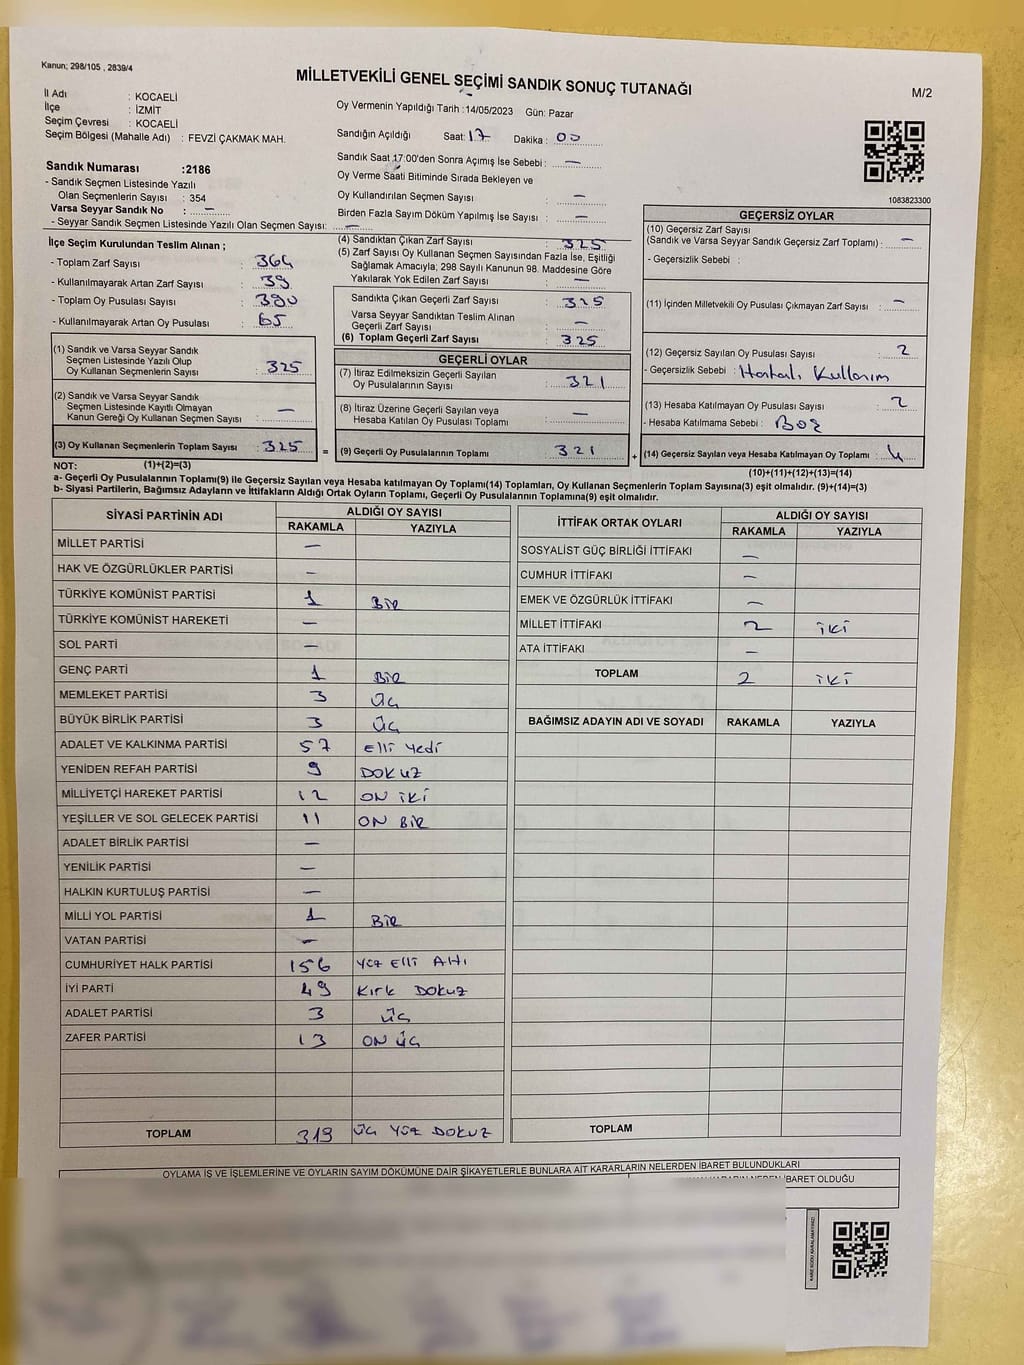 Kanun; 298/105 , 2839/4
MİLLETVEKİLİ GENEL SEÇİMİ SANDIK SONUÇ TUTANAĞI
M/2
İl Adı : KOCAELİ
İlçe : İZMİT
Seçim Çevresi : KOCAELİ
Seçim Bölgesi (Mahalle Adı) : FEVZİ ÇAKMAK MAH.
Oy Vermenin Yapıldığı Tarih :14/05/2023 Gün: Pazar
Sandığın Açıldığı Saat: 17 Dakika : 00
Sandık Saat 17:00'den Sonra Açımış İse Sebebi : —
Oy Verme Saati Bitiminde Sırada Bekleyen ve
Oy Kullandırılan Seçmen Sayısı : —
Birden Fazla Sayım Döküm Yapılmış İse Sayısı : —
1083823300
Sandık Numarası :2186
- Sandık Seçmen Listesinde Yazılı
Olan Seçmenlerin Sayısı : 354
Varsa Seyyar Sandık No : —
- Seyyar Sandık Seçmen Listesinde Yazılı Olan Seçmen Sayısı: —
İlçe Seçim Kurulundan Teslim Alınan ;
- Toplam Zarf Sayısı : 364
- Kullanılmayarak Artan Zarf Sayısı : 39
- Toplam Oy Pusulası Sayısı : 390
- Kullanılmayarak Artan Oy Pusulası : 65
(1) Sandık ve Varsa Seyyar Sandık
Seçmen Listesinde Yazılı Olup
Oy Kullanan Seçmenlerin Sayısı : 325
(2) Sandık ve Varsa Seyyar Sandık
Seçmen Listesinde Kayıtlı Olmayan
Kanun Gereği Oy Kullanan Seçmen Sayısı : —
(3) Oy Kullanan Seçmenlerin Toplam Sayısı : 325
(4) Sandıktan Çıkan Zarf Sayısı : 325
(5) Zarf Sayısı Oy Kullanan Seçmen Sayısından Fazla İse, Eşitliği
Sağlamak Amacıyla; 298 Sayılı Kanunun 98. Maddesine Göre
Yakılarak Yok Edilen Zarf Sayısı : —
Sandıkta Çıkan Geçerli Zarf Sayısı : 325
Varsa Seyyar Sandıktan Teslim Alınan
Geçerli Zarf Sayısı : —
(6) Toplam Geçerli Zarf Sayısı : 325
GEÇERLİ OYLAR
(7) İtiraz Edilmeksizin Geçerli Sayılan
Oy Pusulalarının Sayısı : 321
(8) İtiraz Üzerine Geçerli Sayılan veya
Hesaba Katılan Oy Pusulası Toplamı : —
= (9) Geçerli Oy Pusulalarının Toplamı : 321
GEÇERSİZ OYLAR
(10) Geçersiz Zarf Sayısı
(Sandık ve Varsa Seyyar Sandık Geçersiz Zarf Toplamı) : —
- Geçersizlik Sebebi :
(11) İçinden Milletvekili Oy Pusulası Çıkmayan Zarf Sayısı : —
(12) Geçersiz Sayılan Oy Pusulası Sayısı : 2
- Geçersizlik Sebebi : Hatalı Kullanım
(13) Hesaba Katılmayan Oy Pusulası Sayısı : 2
- Hesaba Katılmama Sebebi : Boş
+ (14) Geçersiz Sayılan veya Hesaba Katılmayan Oy Toplamı : 4
NOT: (1)+(2)=(3)
(10)+(11)+(12)+(13)=(14)
a- Geçerli Oy Pusulalarının Toplamı(9) ile Geçersiz Sayılan veya Hesaba katılmayan Oy Toplamı(14) Toplamları, Oy Kullanan Seçmenlerin Toplam Sayısına(3) eşit olmalıdır. (9)+(14)=(3)
b- Siyasi Partilerin, Bağımsız Adayların ve İttifakların Aldığı Ortak Oyların Toplamı, Geçerli Oy Pusulalarının Toplamına(9) eşit olmalıdır.
SİYASİ PARTİNİN ADI ALDIĞI OY SAYISI
RAKAMLA YAZIYLA
MİLLET PARTİSİ —
HAK VE ÖZGÜRLÜKLER PARTİSİ —
TÜRKİYE KOMÜNİST PARTİSİ 1 BİR
TÜRKİYE KOMÜNİST HAREKETİ —
SOL PARTİ —
GENÇ PARTİ 1 BİR
MEMLEKET PARTİSİ 3 ÜÇ
BÜYÜK BİRLİK PARTİSİ 3 ÜÇ
ADALET VE KALKINMA PARTİSİ 57 Elli Yedi
YENİDEN REFAH PARTİSİ 9 DOKUZ
MİLLİYETÇİ HAREKET PARTİSİ 12 ON İKİ
YEŞİLLER VE SOL GELECEK PARTİSİ 11 ON BİR
ADALET BİRLİK PARTİSİ —
YENİLİK PARTİSİ —
HALKIN KURTULUŞ PARTİSİ —
MİLLİ YOL PARTİSİ 1 BİR
VATAN PARTİSİ —
CUMHURİYET HALK PARTİSİ 156 YÜZ Elli Altı
İYİ PARTİ 49 Kırk Dokuz
ADALET PARTİSİ 3 ÜÇ
ZAFER PARTİSİ 13 ON ÜÇ
TOPLAM 319 ÜÇ YÜZ DOKUZ
İTTİFAK ORTAK OYLARI ALDIĞI OY SAYISI
RAKAMLA YAZIYLA
SOSYALİST GÜÇ BİRLİĞİ İTTİFAKI —
CUMHUR İTTİFAKI —
EMEK VE ÖZGÜRLÜK İTTİFAKI —
MİLLET İTTİFAKI 2 İKİ
ATA İTTİFAKI —
TOPLAM 2 İKİ
BAĞIMSIZ ADAYIN ADI VE SOYADI RAKAMLA YAZIYLA
TOPLAM
OYLAMA İŞ VE İŞLEMLERİNE VE OYLARIN SAYIM DÖKÜMÜNE DAİR ŞİKAYETLERLE BUNLARA AİT KARARLARIN NELERDEN İBARET BULUNDUKLARI
İBARET OLDUĞU